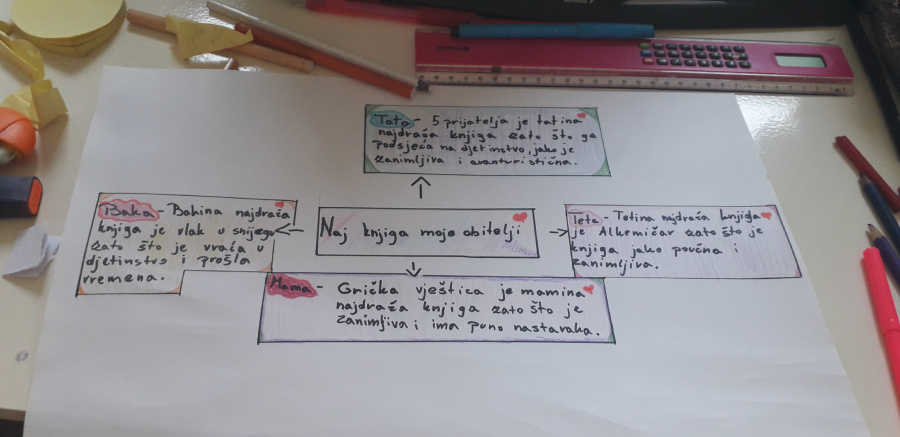 Tata - 5 prijatelja je tatina
najdraža knjiga zato što ga
podsjeća na djetinstvo, jako je
zanimljiva i avanturistična.
Baka - Bakina najdraža
knjiga je vlak u snijegu
zato što je vraća u
djetinstvo i prošla
vremena.
Naj knjiga moje obitelji
Teta - Tetina najdraža knjiga
je Alkemičar zato što je
knjiga jako poučna i
zanimljiva.
Mama - Grička vještica je mamina
najdraža knjiga zato što je
zanimljiva i ima puno nastavaka.